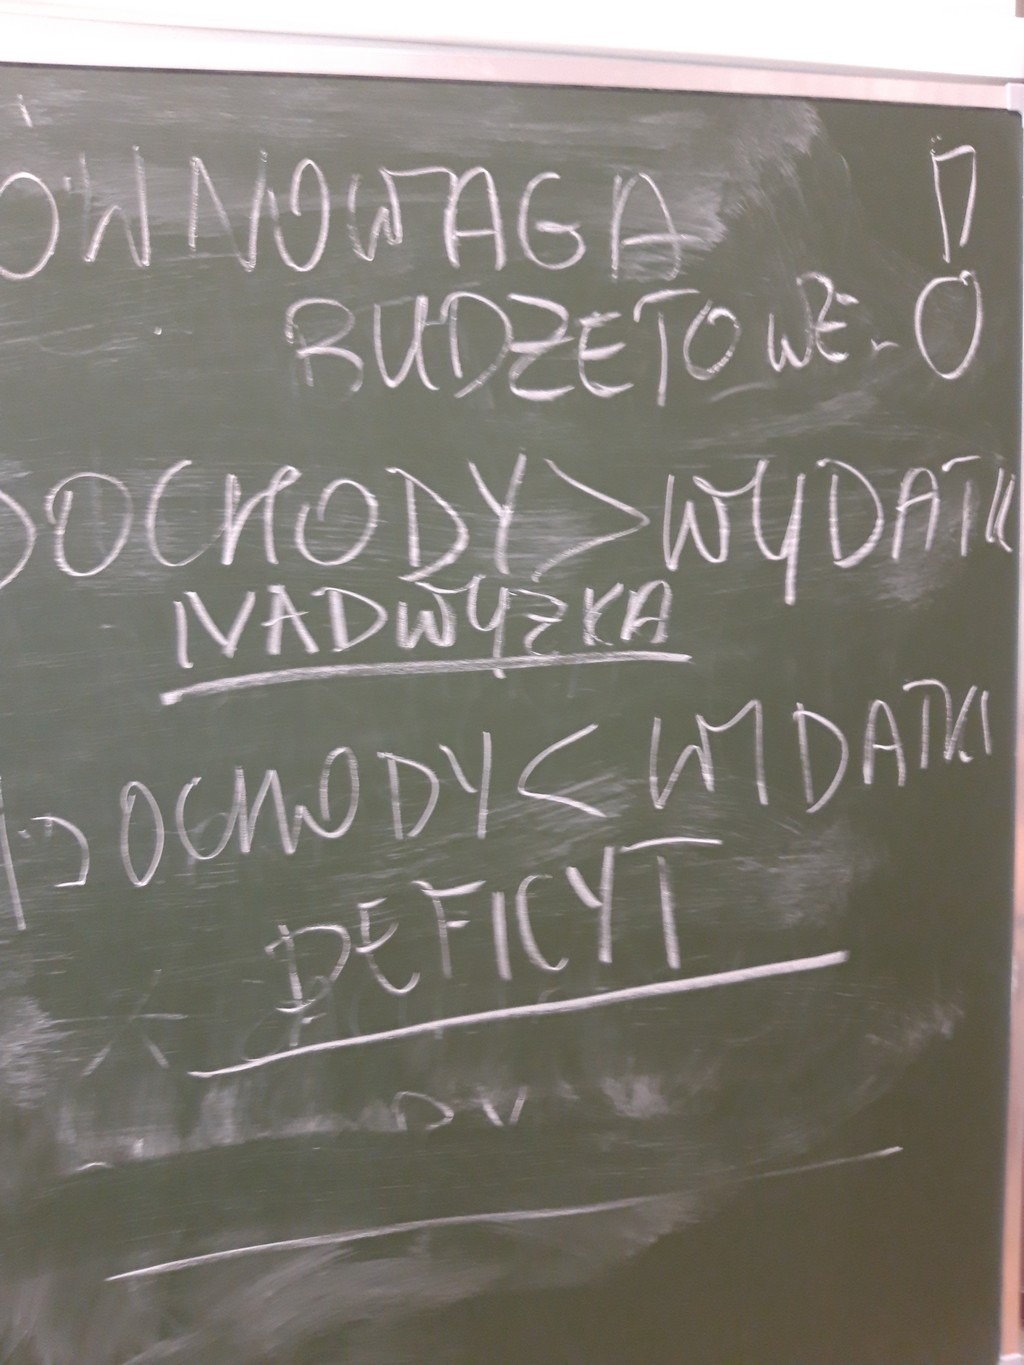 ÓWNOWAGA
BUDŻETOWE !
DOCHODY > WYDATKI
NADWYŻKA
DOCHODY < WYDATKI
DEFICYT